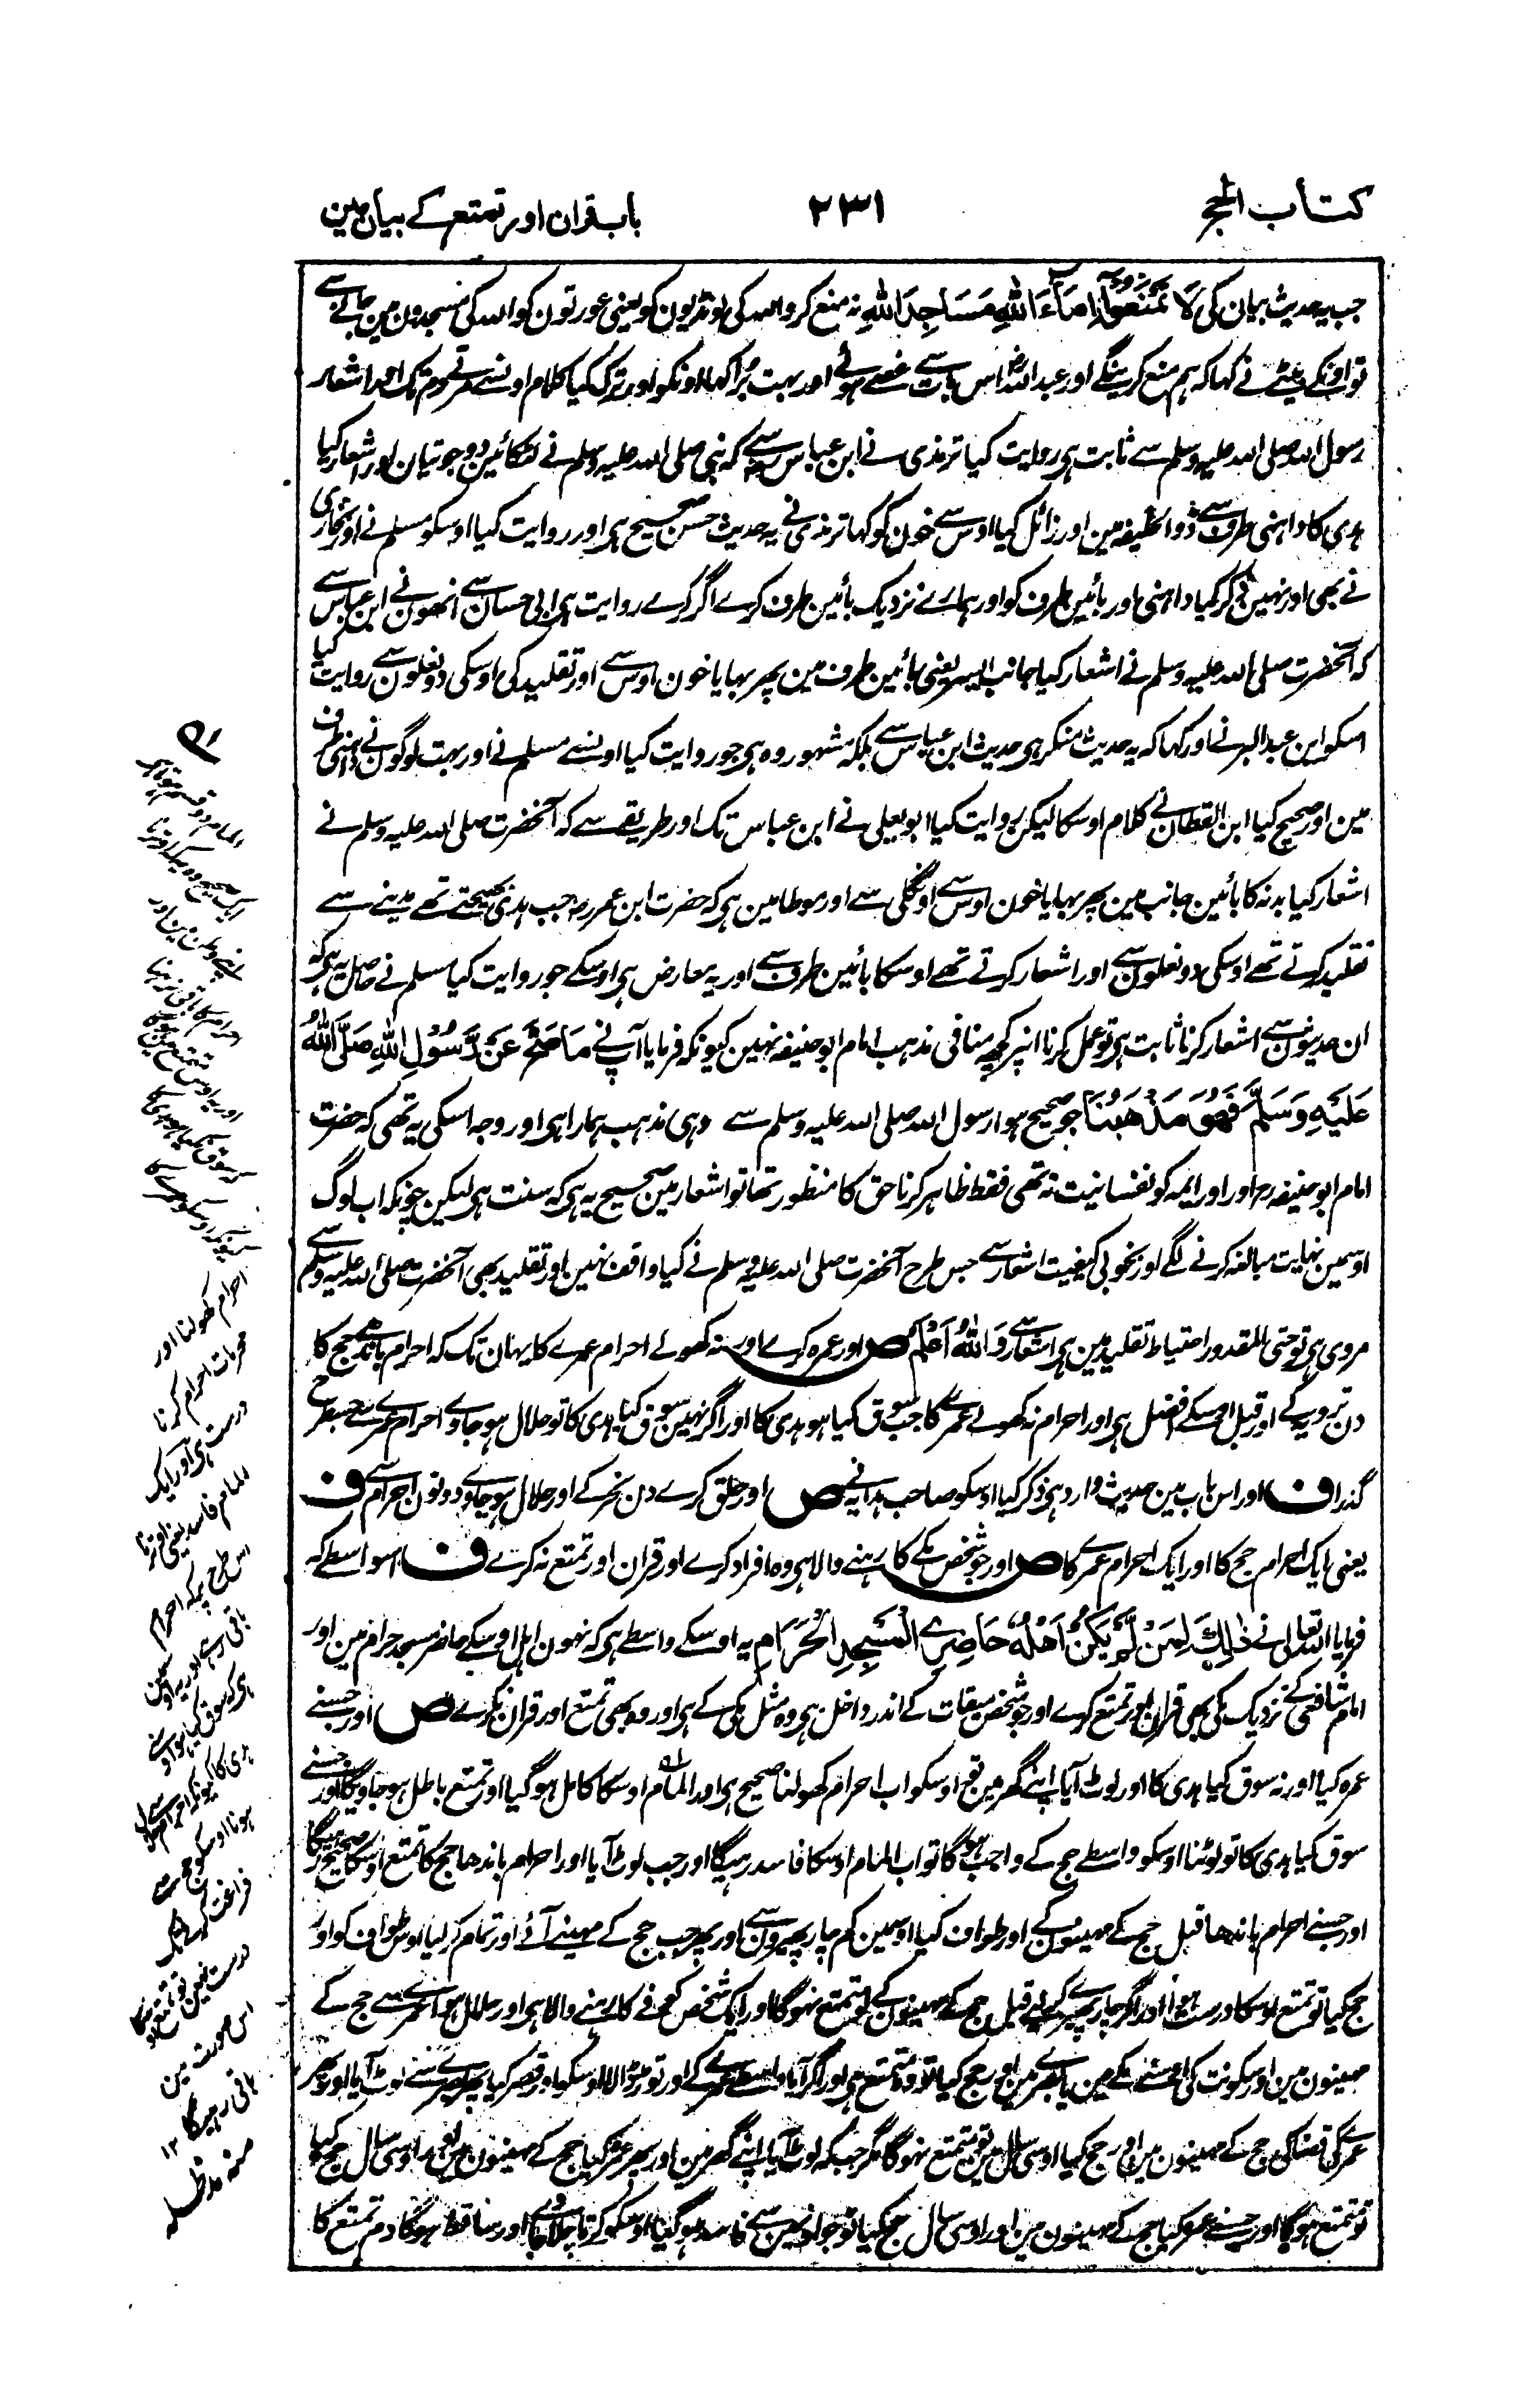 کتاب الحج
۲۳۱
باب قران اور تمتع کے بیان مین
جب یہ حدیث بیان کی لَا تَمْنَعُوْا اِمَاءَ اللّٰهِ مَسَاجِدَ اللّٰهِ نہ منع کرو اللہ کی لونڈیون کو یعنی عورتون کو اللہ کی مسجدون مین جانے سے
تو اونکے بیٹے نے کہا کہ ہم منع کرینگے اور عبد اللہ اس بات سے غصے ہوئے اور بہت بُرا کہا اونکو اور ترک کیا کلام اونسے مرتے دم تک اور اشعار
رسول اللہ صلی اللہ علیہ وسلم سے ثابت ہی روایت کیا ترمذی نے ابن عباس سے کہ نبی صلی اللہ علیہ وسلم نے لٹکائین دو جوتیان اور اشعار کیا
ہدی کا داہنی طرف سے ذو الحلیفہ مین اور زائل کیا اوس سے خون کو کہا ترمذی نے یہ حدیث حسن صحیح ہی اور روایت کیا اوسکو مسلم نے اور بخاری
نے بھی اور نہین ذکر کیا داہنی اور بائین طرف کو اور ہمارے نزدیک بائین طرف کرے اگر کرے روایت ہی ابی حسان سے انھون نے ابن عباس سے
کہ آنحضرت صلی اللہ علیہ وسلم نے اشعار کیا جانب ایسر یعنی بائین طرف مین پھر بہایا خون اوس سے اور تقلید کی اوسکی دو نعلون سے روایت کیا
اسکو ابن عبد البر نے اور کہا کہ یہ حدیث منکر ہی حدیث ابن عباس سے بلکہ مشہور وہ ہی جو روایت کیا اونسے مسلم نے اور بہت لوگون نے داہنی طرف
مین اور صحیح کیا ابن القطان نے کلام اوسکا لیکن روایت کیا ابو یعلی نے ابن عباس تک اور طریقے سے کہ آنحضرت صلی اللہ علیہ وسلم نے
اشعار کیا بدنہ کا بائین جانب مین پھر بہایا خون اوس سے اونگلی سے اور موطا مین ہی کہ حضرت ابن عمر رضہ جب ہدی بھیجتے تھے مدینے سے
تقلید کرتے تھے اوسکی دو نعلون سے اور اشعار کرتے تھے اوسکا بائین طرف سے اور یہ معارض ہی اوسکے جو روایت کیا مسلم نے حاصل یہ ہی کہ
ان حدیثون سے اشعار کرنا ثابت ہی تو عمل کرنا انپر کچھ منافی مذہب امام ابو حنیفہ نہین کیونکہ فرمایا آپ نے مَا صَحَّ عَنْ رَّسُوْلِ اللّٰهِ صَلَّى اللّٰهُ
عَلَيْهِ وَسَلَّمَ فَهُوَ مَذْهَبُنَا جو صحیح ہو ا رسول اللہ صلی اللہ علیہ وسلم سے وہی مذہب ہمارا ہی اور وجہ اسکی یہ تھی کہ حضرت
امام ابو حنیفہ رح اور اور ایمہ کو نفسانیت نہ تھی فقط ظاہر کرنا حق کا منظور تھا تو اشعار مین صحیح یہ ہی کہ سنت ہی لیکن چونکہ اب لوگ
اوسمین نہایت مبالغہ کرنے لگے اور بخوبی کیفیت اشعار سے جس طرح آنحضرت صلی اللہ علیہ وسلم نے کیا واقف نہین اور تقلید بھی آنحضرت صلی اللہ علیہ وسلم سے
مروی ہی تو حتی المقدور احتیاط تقلید مین ہی اشعار سے وَ اللّٰهُ اَعْلَمُ ص اور عمرہ کرے اور نہ کھولے احرام عمرے کا یہان تک کہ احرام باندھے حج کا
دن ترویہ کے اور قبل اسکے افضل ہی اور احرام نہ کھولے عمرے کا جب سوق کیا ہو ہدی کا اور اگر نہین سوق کیا ہدی کا تو حلال ہو جاوے احرام عمرے سے جسطرح
گذرا ف اور اس باب مین حدیث وارد ہی ذکر کیا اوسکو صاحب ہدایہ نے ص اور حلق کرے دن نحر کے اور حلال ہو جاوے دونون احرام سے ف
یعنی ایک احرام حج کا اور ایک احرام عمرے کا ص اور جو شخص مکے کا رہنے والا ہی وہ افراد کرے اور قران اور تمتع نہ کرے ف اسواسطے کہ
فرمایا اللہ تعالی نے ذٰلِكَ لِمَنْ لَّمْ يَكُنْ اَهْلُهٗ حَاضِرِي الْمَسْجِدِ الْحَرَامِ یہ اوسکے واسطے ہی کہ نہون اہل اوسکے حاضر مسجد حرام مین اور
امام شافعی کے نزدیک مکی بھی قران اور تمتع کرے اور جو شخص میقات کے اندر داخل ہی وہ مثل مکی کے ہی اور وہ بھی تمتع اور قران نکرے ص اور جسنے
عمرہ کیا اور نہ سوق کیا ہدی کا اور لوٹ آیا اپنے گھر مین تو اوسکو اب احرام کھولنا صحیح ہی اور المام اوسکا کامل ہو گیا اور تمتع باطل ہو جاویگا اور جسنے
سوق کیا ہدی کا تو لوٹنا اوسکو واسطے حج کے واجب ہوگا تو اب المام اوسکا فاسد رہیگا اور جب لوٹ آیا اور احرام باندھا حج کا تمتع اوسکا صحیح ہوگا
اور جسنے احرام باندھا قبل حج کے مہینون کے اور طواف کیا اوسمین کم چار پھیرون سے اور پھر جب حج کے مہینے آئے اور تمام کر لیا اوس طواف کو اور
حج کیا تو تمتع اوسکا درست ہوا اور اگر چار پھیرے کر لیے قبل حج کے مہینون کے تو متمتع نہوگا اور ایک شخص کوفے کا رہنے والا ہی اور حلال ہوا عمرے سے حج کے
مہینون مین اور سکونت کی اوسنے مکے مین یا بصرے مین اور حج کیا تو وہ متمتع ہی اور اگر آیا واسطے عمرے کے اور توڑ ڈالا اوسکو اور قصر کیا پھر بصرے سے لوٹ آیا اور پھر
عمرے کی قضا کی حج کے مہینون مین اور حج کیا اوسی سال مین تو متمتع نہوگا مگر جب کہ لوٹ آیا اپنے گھر مین اور پھر عمرہ کیا حج کے مہینون مین بعد اوسی سال حج کیا
تو متمتع ہوگا اور جسنے عمرہ کیا حج کے مہینون مین اور اوسی سال حج کیا تو جو اونمین سے فاسد ہو گیا اوسکو کرتا چلا جاوے اور ساقط ہوگا دم تمتع کا
احرام کھولنا اور
محرمات احرام کرنا
درست ہی اور ایک
المام فاسد یعنی اوترنا
اس طرح پر کہ احرام
باقی رہے اور یہ اوسمین
ہی کہ سوق کیا ہو اوسنے
ہدی کا کیونکہ احرام سے حلال
ہونا اوسکو حج سے
فراغت کرنے تک
درست نہین تو تمتع اوسکا
اس صورت مین
باقی رہیگا ۱۲
منہ مد ظلہ